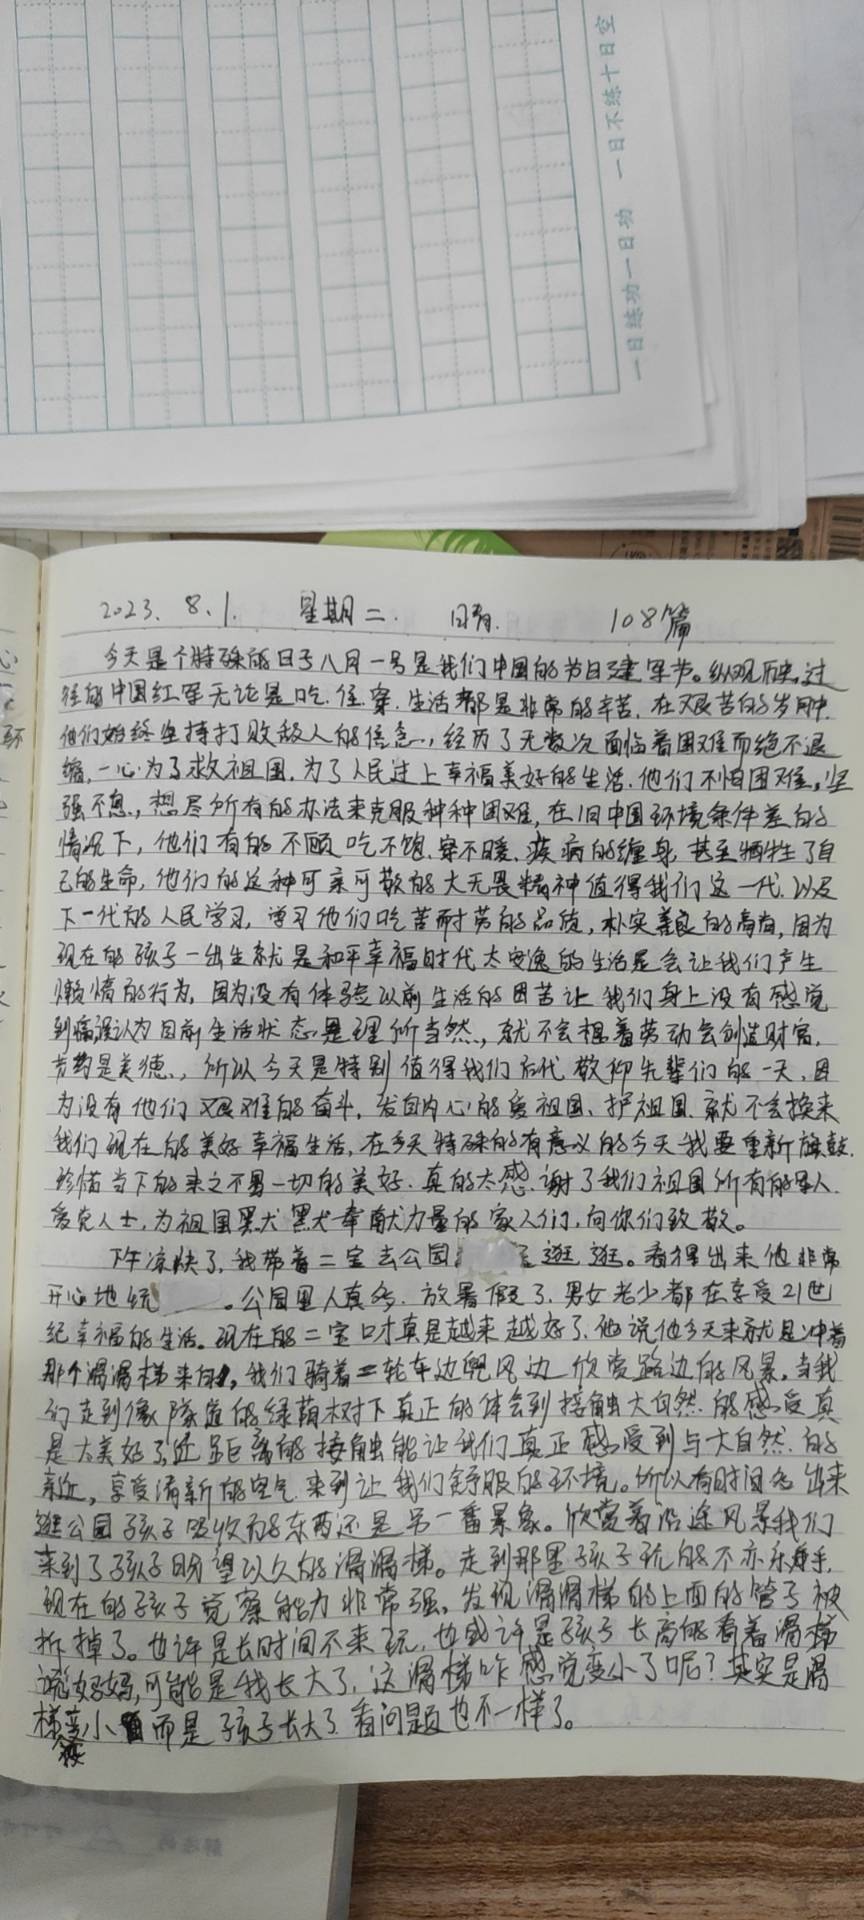 一日练功一日功 一日不练十日空
2023. 8. 1. 星期二. 晴. 108篇
今天是个特殊的日子八月一号是我们中国的节日建军节。纵观历史,过
往的中国红军无论是吃.住.穿.生活都是非常的辛苦.在艰苦的岁月中.
他们始终坚持打败敌人的信念,经历了无数次面临着困难而绝不退
缩,一心为了救祖国,为了人民过上幸福美好的生活.他们不怕困难,坚
强不息,想尽所有的办法来克服种种困难,在旧中国环境条件差的
情况下,他们有的不顾吃不饱.穿不暖、疾病的缠身,甚至牺牲了自
己的生命,他们的这种可亲可敬的大无畏精神值得我们这一代.以及
下一代的人民学习,学习他们吃苦耐劳的品质,朴实善良的,因为
现在的孩子一出生就是和平幸福时代太安逸的生活是会让我们产生
懒惰的行为,因为没有体验以前生活的困苦让我们身上没有感觉
到痛,误认为目前生活状态是理所当然,就不会想着劳动会创造财富,
节约是美德,所以今天是特别值得我们后代敬仰先辈们的一天,因
为没有他们艰难的奋斗,发自内心的爱祖国、护祖国.就不会换来
我们现在的美好幸福生活,在今天特殊的有意义的今天我要重新旗鼓.
珍惜当下的来之不易一切的美好.真的太感谢了我们祖国所有的军人.
爱党人士,为祖国默默奉献力量的家人们,向你们致敬。
下午凉快了,我带着二宝去公园 逛逛。看得出来他非常
开心地 。公园里人真多.放暑假了.男女老少都在享受21世
纪幸福的生活。现在的二宝口才真是越来越好了.他说他今天来就是冲着
那个滑滑梯来的,我们骑着二轮车边兜风边欣赏路边的风景,当我
们走到像隧道的绿荫树下真正的体会到接触大自然的感受真
是太美好了,近距离的接触能让我们真正感受到与大自然的
亲近,享受清新的空气.来到让我们舒服的环境。所以有时间多出来
逛公园孩子吸收的东西还是另一番景象。欣赏着沿途风景我们
来到了孩子盼望以久的滑滑梯。走到那里孩子玩的不亦乐乎,
现在的孩子觉察能力非常强,发现滑滑梯的上面的管子被
拆掉了。也许是长时间不来玩,也或许是孩子长高的看着滑梯
说妈妈,可能是我长大了,这滑梯咋感觉变小了呢?其实是滑
梯变小而是孩子长大了看问题也不一样了。
没